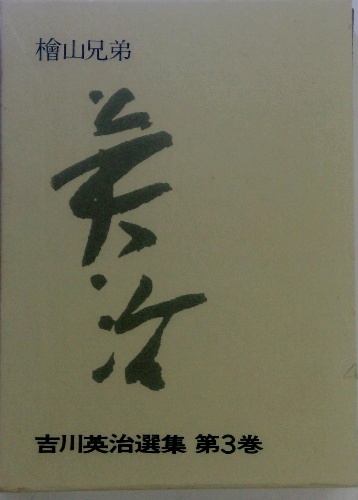 檜山兄弟
英治
吉川英治選集 第3巻